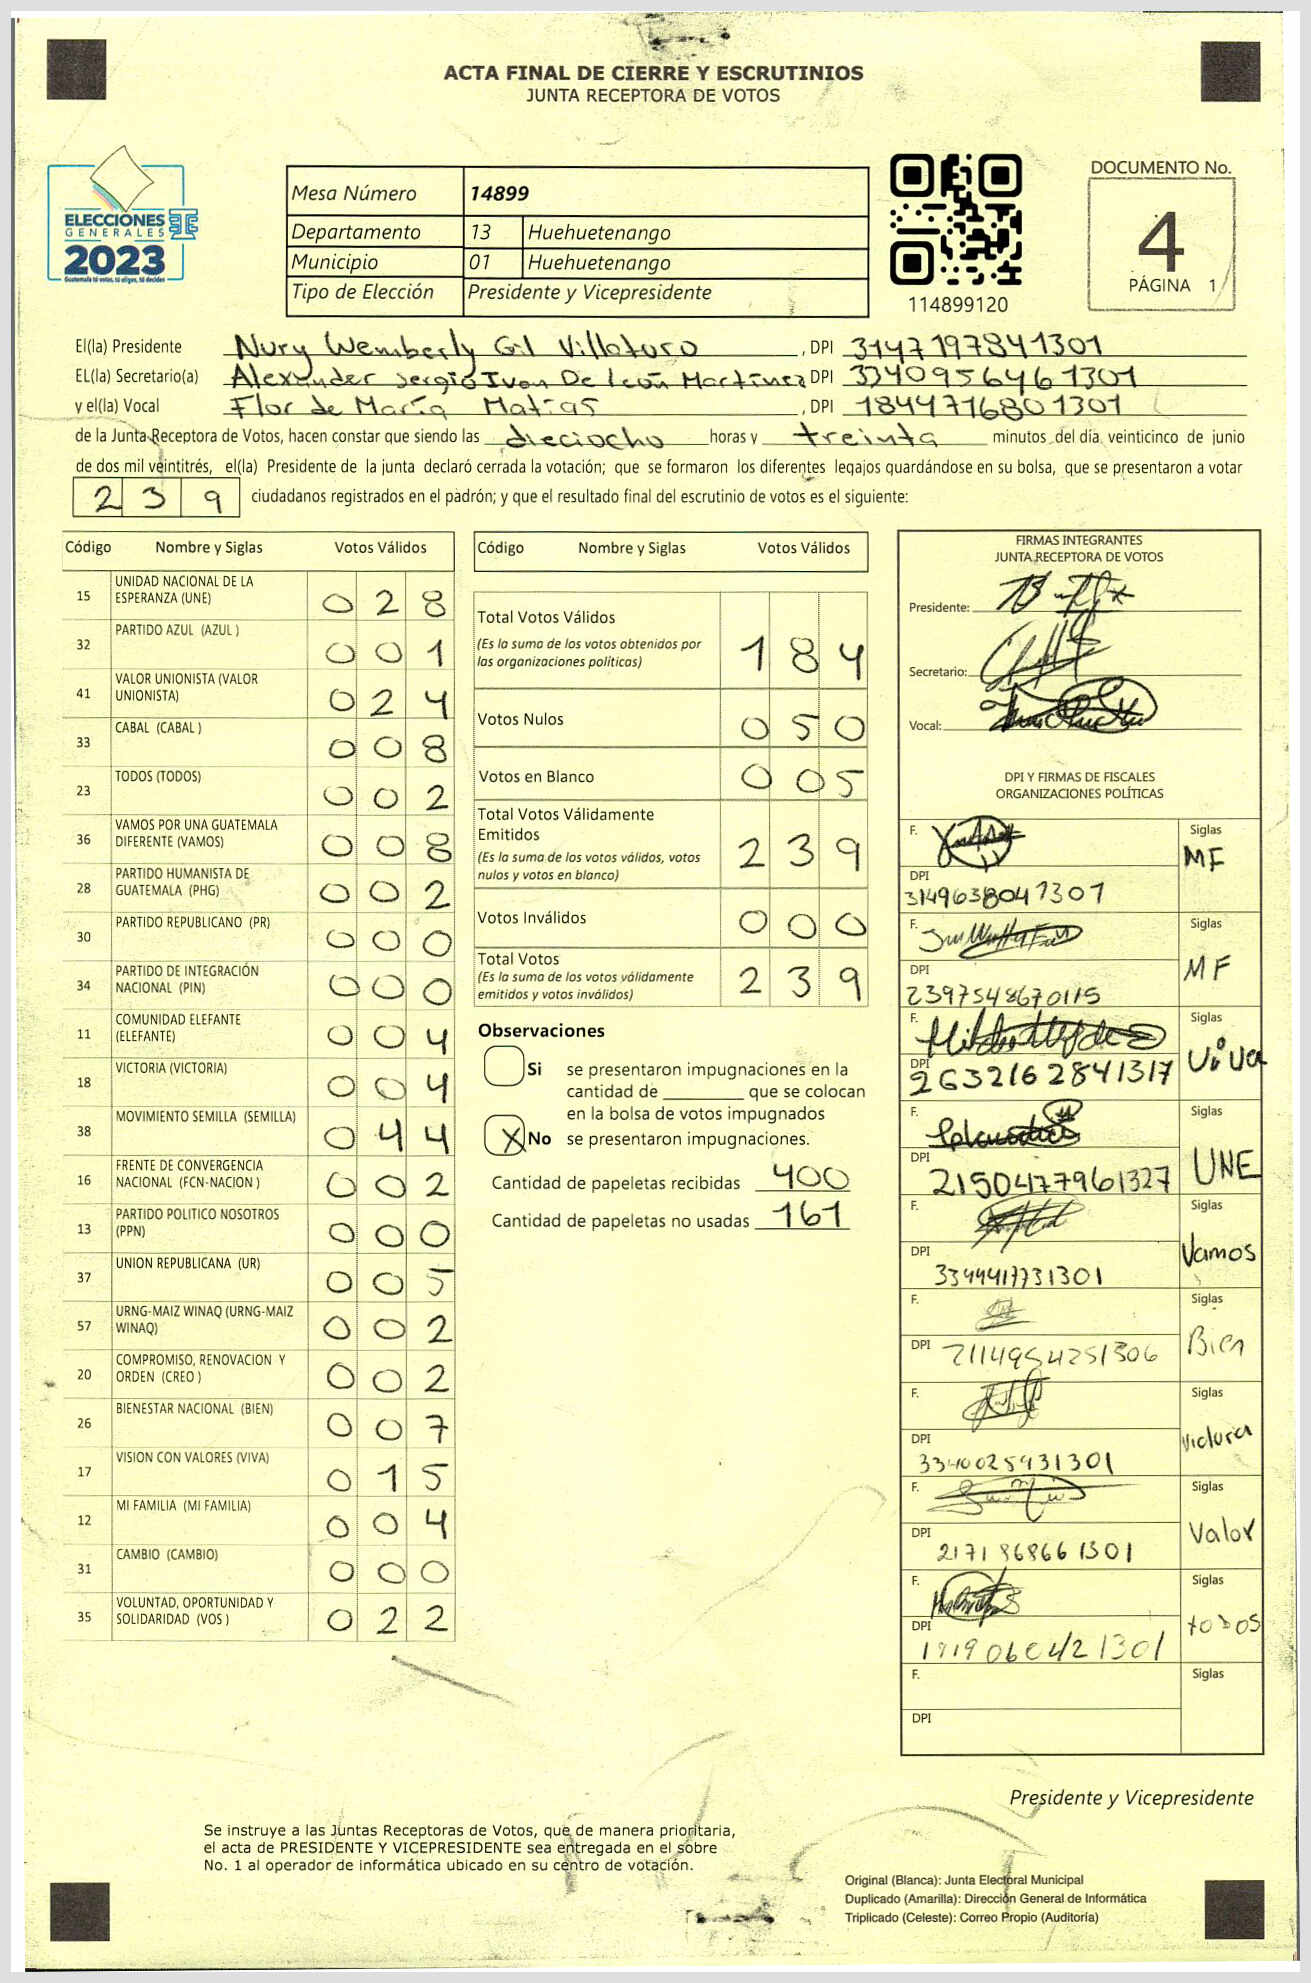 ACTA FINAL DE CIERRE Y ESCRUTINIOS
JUNTA RECEPTORA DE VOTOS
ELECCIONES
GENERALES
2023
Guatemala tú votas, tú eliges, tú decides
Mesa Número 14899
Departamento 13 Huehuetenango
Municipio 01 Huehuetenango
Tipo de Elección Presidente y Vicepresidente
114899120
DOCUMENTO No.
4
PÁGINA 1
El(la) Presidente Nury Wemberly Gil Villatoro, DPI 3147197841301
EL(la) Secretario(a) Alexander Sergio Ivan De León Martínez DPI 3340956461301
y el(la) Vocal Flor de María Matías, DPI 1844716801301
de la Junta Receptora de Votos, hacen constar que siendo las dieciocho horas y treinta minutos del día veinticinco de junio
de dos mil veintitrés, el(la) Presidente de la junta declaró cerrada la votación; que se formaron los diferentes legajos guardándose en su bolsa, que se presentaron a votar
239 ciudadanos registrados en el padrón; y que el resultado final del escrutinio de votos es el siguiente:
Código Nombre y Siglas Votos Válidos
15 UNIDAD NACIONAL DE LA
ESPERANZA (UNE) 028
32 PARTIDO AZUL (AZUL ) 001
41 VALOR UNIONISTA (VALOR
UNIONISTA) 024
33 CABAL (CABAL ) 008
23 TODOS (TODOS) 002
36 VAMOS POR UNA GUATEMALA
DIFERENTE (VAMOS) 008
28 PARTIDO HUMANISTA DE
GUATEMALA (PHG) 002
30 PARTIDO REPUBLICANO (PR) 000
34 PARTIDO DE INTEGRACIÓN
NACIONAL (PIN) 000
11 COMUNIDAD ELEFANTE
(ELEFANTE) 004
18 VICTORIA (VICTORIA) 004
38 MOVIMIENTO SEMILLA (SEMILLA) 044
16 FRENTE DE CONVERGENCIA
NACIONAL (FCN-NACION ) 002
13 PARTIDO POLITICO NOSOTROS
(PPN) 000
37 UNION REPUBLICANA (UR) 005
57 URNG-MAIZ WINAQ (URNG-MAIZ
WINAQ) 002
20 COMPROMISO, RENOVACION Y
ORDEN (CREO ) 002
26 BIENESTAR NACIONAL (BIEN) 007
17 VISION CON VALORES (VIVA) 015
12 MI FAMILIA (MI FAMILIA) 004
31 CAMBIO (CAMBIO) 000
35 VOLUNTAD, OPORTUNIDAD Y
SOLIDARIDAD (VOS ) 022
Código Nombre y Siglas Votos Válidos
Total Votos Válidos
(Es la suma de los votos obtenidos por
las organizaciones políticas) 184
Votos Nulos 050
Votos en Blanco 005
Total Votos Válidamente
Emitidos
(Es la suma de los votos válidos, votos
nulos y votos en blanco) 239
Votos Inválidos 000
Total Votos
(Es la suma de los votos válidamente
emitidos y votos inválidos) 239
Observaciones
Si se presentaron impugnaciones en la
cantidad de ________ que se colocan
en la bolsa de votos impugnados
X No se presentaron impugnaciones.
Cantidad de papeletas recibidas 400
Cantidad de papeletas no usadas 161
FIRMAS INTEGRANTES
JUNTA RECEPTORA DE VOTOS
Presidente:
Secretario:
Vocal:
DPI Y FIRMAS DE FISCALES
ORGANIZACIONES POLÍTICAS
F. Siglas
MF
DPI
3149638041301
F. Siglas
MF
DPI
2397548670115
F. Siglas
ViVa
DPI
2632162841317
F. Siglas
UNE
DPI
2150477961327
F. Siglas
Vamos
DPI
3344417731301
F. Siglas
Bien
DPI 2114954251306
F. Siglas
Victoria
DPI
3340025931301
F. Siglas
Valor
DPI
2171868661301
F. Siglas
todos
DPI
F. Siglas
DPI
Presidente y Vicepresidente
Se instruye a las Juntas Receptoras de Votos, que de manera prioritaria,
el acta de PRESIDENTE Y VICEPRESIDENTE sea entregada en el sobre
No. 1 al operador de informática ubicado en su centro de votación.
Original (Blanca): Junta Electoral Municipal
Duplicado (Amarilla): Dirección General de Informática
Triplicado (Celeste): Correo Propio (Auditoría)